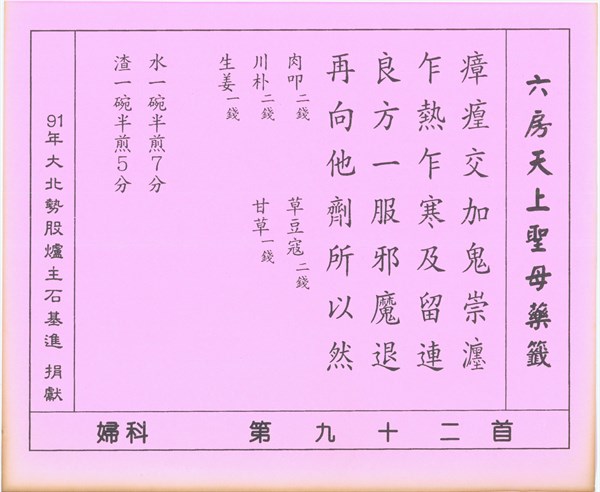 六房天上聖母藥籤
瘴瘟交加鬼祟瀍
乍熱乍寒及留連
良方一服邪魔退
再向他劑所以然
肉叩二錢 草豆寇二錢
川朴二錢 甘草一錢
生姜一錢
水一碗半煎7分
渣一碗半煎5分
91年大北勢股爐主石基進 捐獻
婦科 第九十二首